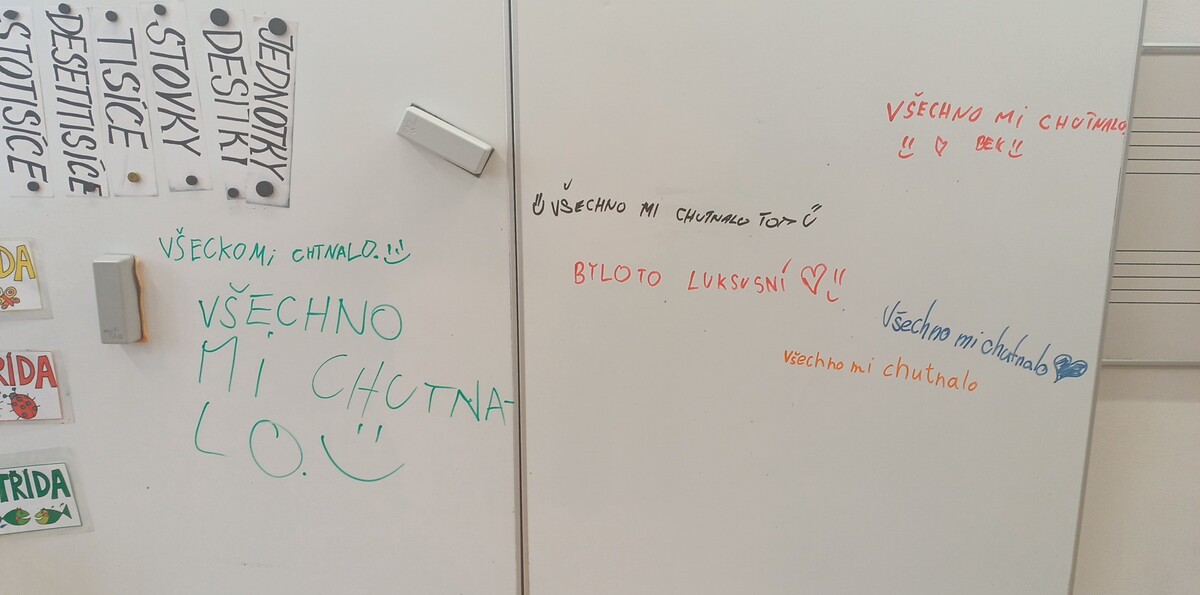 STOTISÍCE
DESETITISÍCE
TISÍCE
STOVKY
DESITKI
JEDNOTKY
DA
ŘÍDA
TŘÍDA
VŠECKOMi CHTNALO.
VŠECHNO
Mi CHUTNA-
LO.
VŠECHNO MI CHUTNALO TOM
BYLOTO LUKSUSNÍ
VŠECHNO Mi CHUTNALO.
BEK
Všechno mi chutnalo
Všechno mi chutnalo